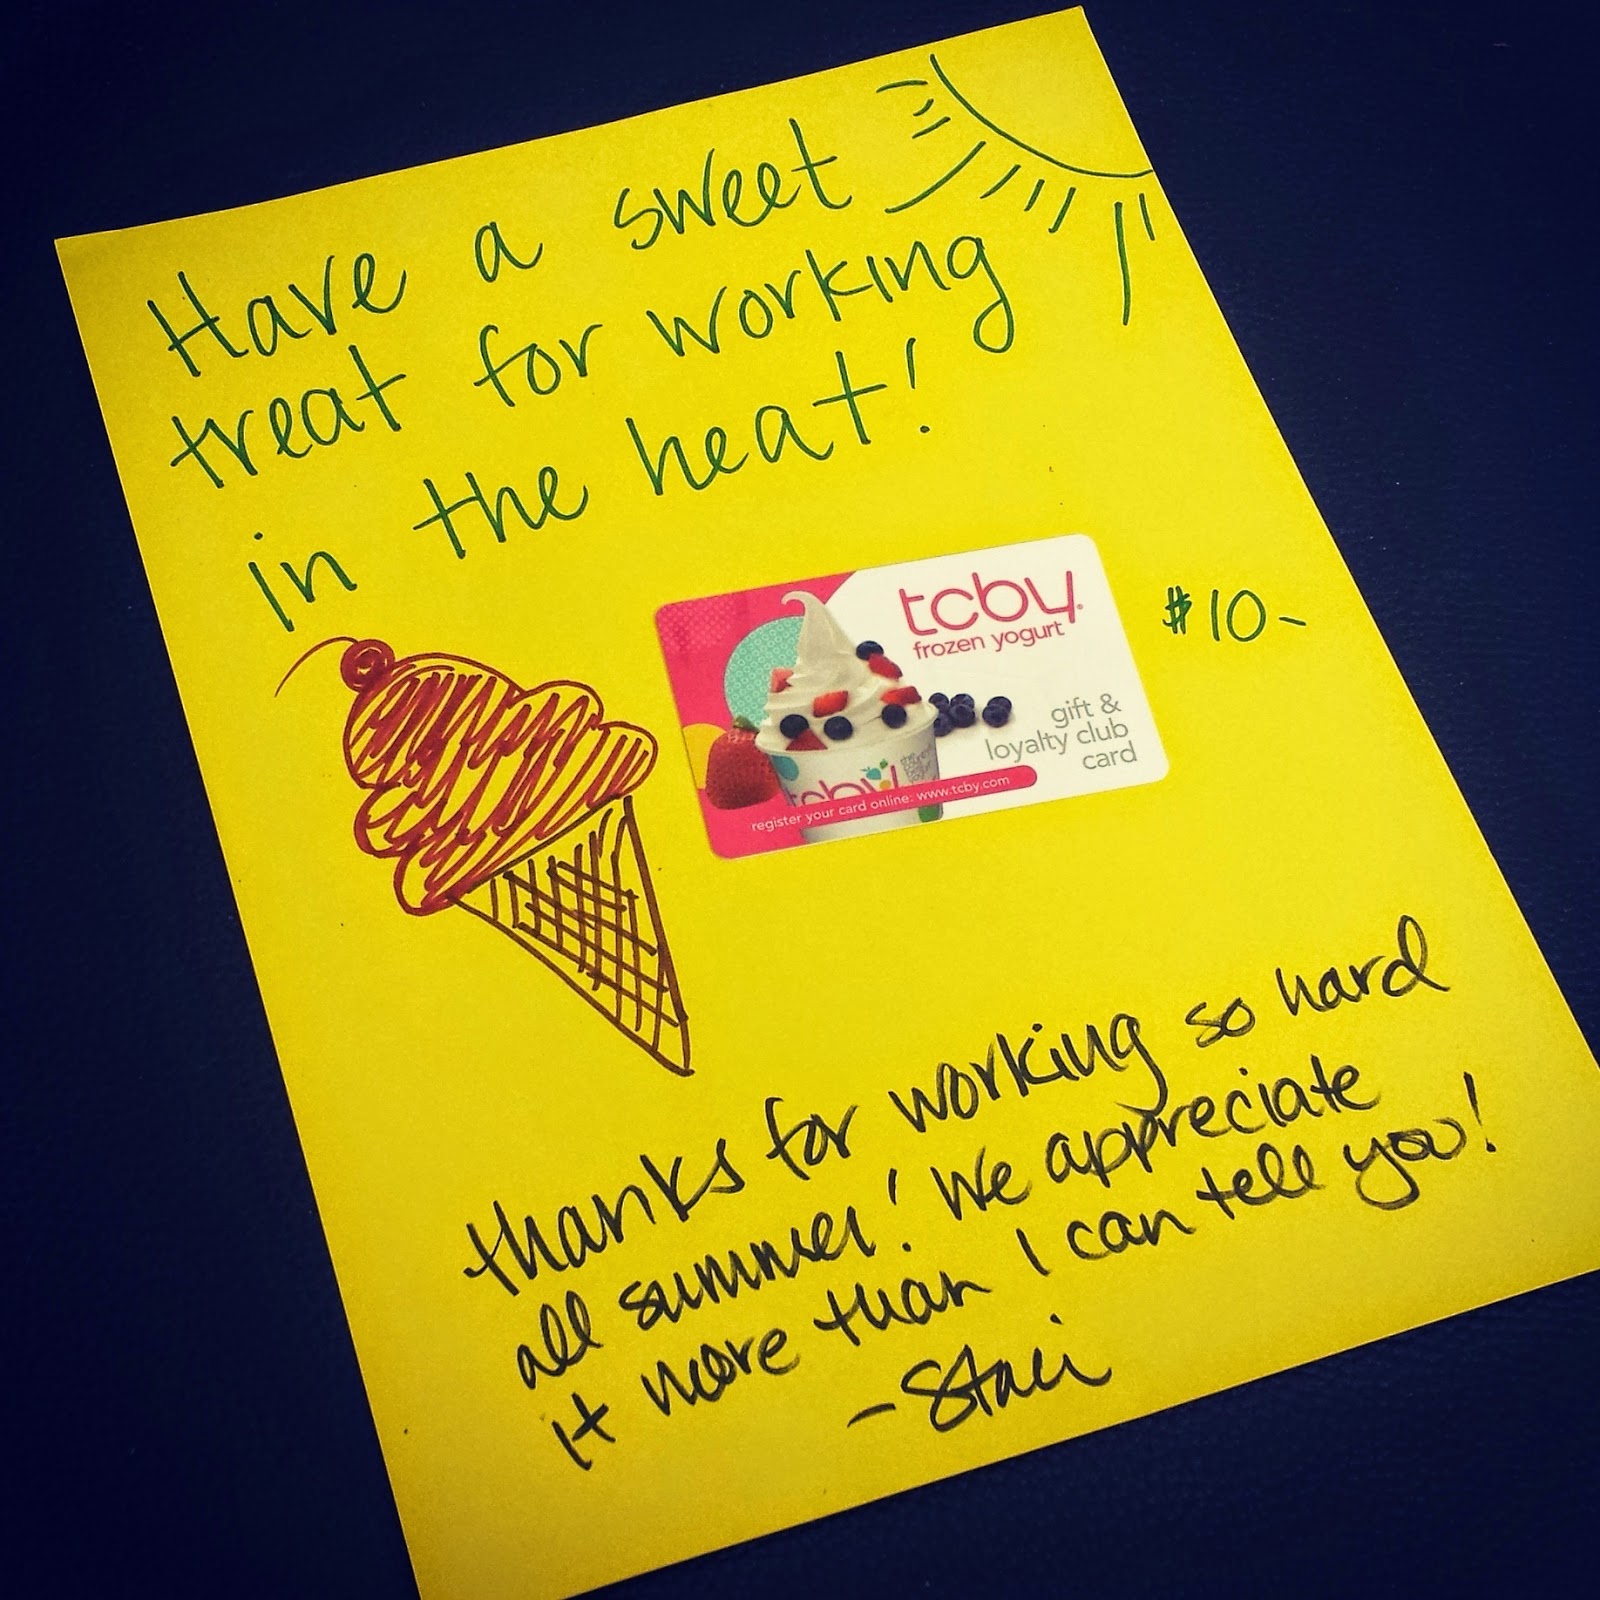 Have a sweet
treat for working
in the heat!
tcby
frozen yogurt
gift &
loyalty club
card
tcby
register your card online: www.tcby.com
$10-
thanks for working so hard
all summer! We appreciate
it more than I can tell you!
-Staci